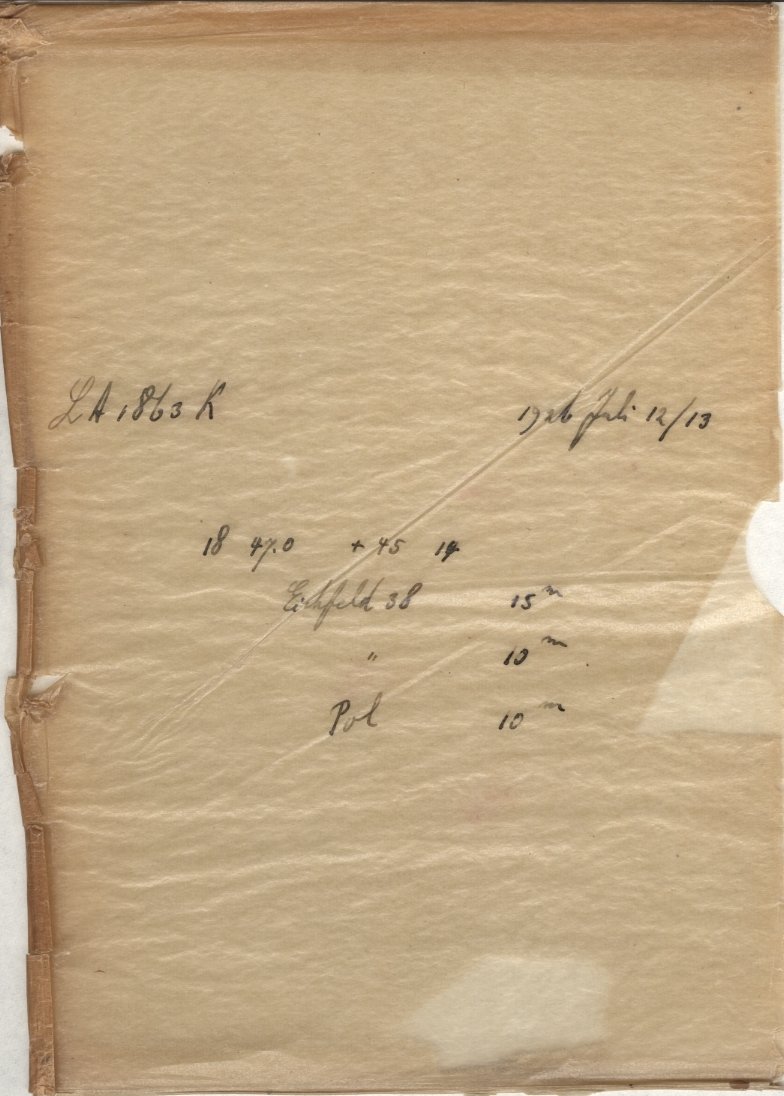 LA 1863 K 1926 Juli 12/13
18 47.0 + 45 14
Eichfeld 38 15 m
" 10 m
Pol 10 m